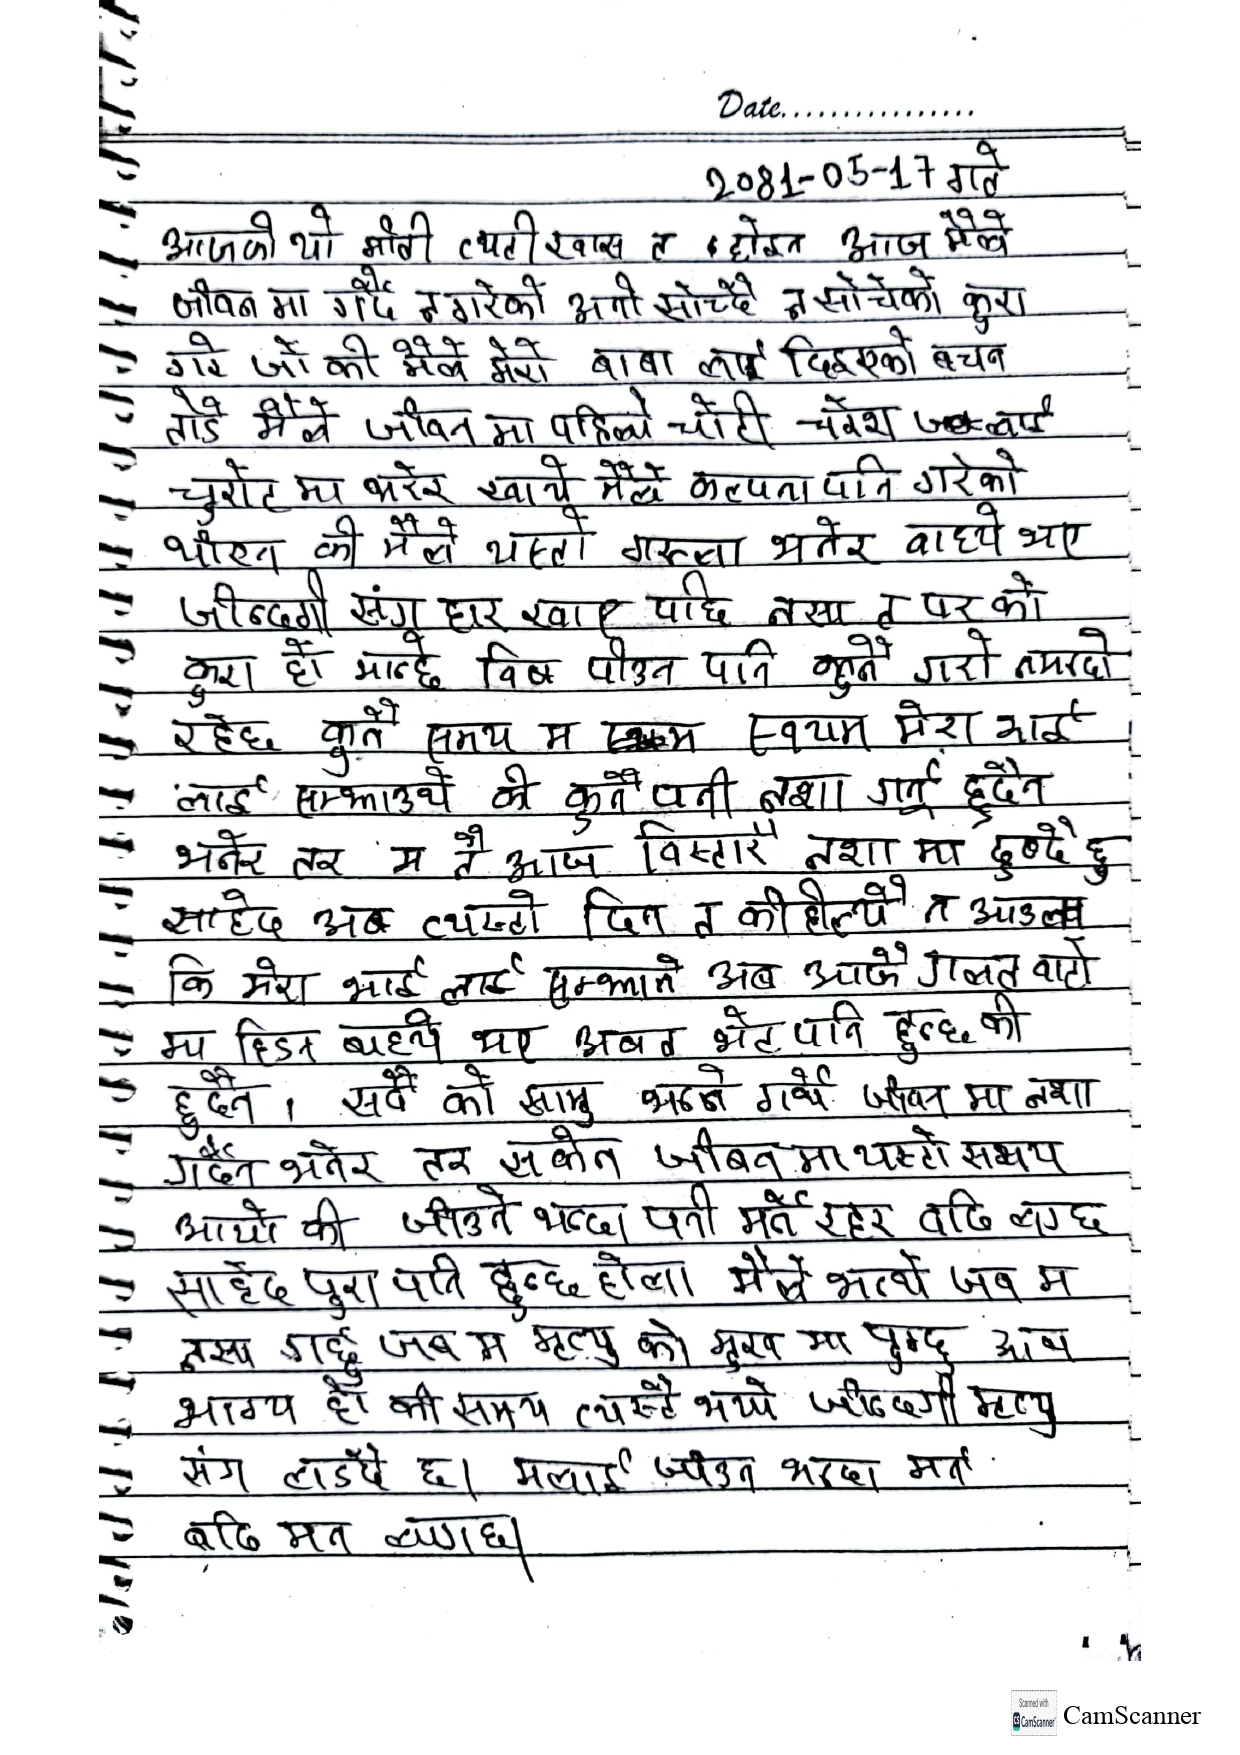 Date................
2081-05-17 गते
आजको यो मीती त्यती खास त होइन आज मैले
जीवन मा गर्दै नगरेको अनी सोच्दै न सोचेको कुरा
गरे जो की मैले मेरो बाबा लाई दिइएको बचन
तोडे मैले जीवन मा पहिल्यो चोटी चरेश लाई
चुरोट मा भरेर खाये मैले कल्पना पनि गरेको
थीएन की मैले यस्तो गरुला भनेर वाध्ये भए
जीन्दगी संग हार खाए पछि नसा त पर को
कुरा हो मान्छे विष पीउन पनि कुनै गरो नमान्दो
रहेछ कुनै समय म स्वयम मेरा भाई
लाई सम्झाउथे की कुनै पनी नशा गर्नु हुदैन
भनेर तर म नै आज विस्तारै नशा मा डुब्दै छु
साहेद अब त्यस्तो दिन त कीहील्यै न आउला
कि मेरा भाई लाई सम्झाने अब आफै गलत वाटो
मा हिडन बाध्ये भए अबत भेट पनि हुन्छ की
हुदैन । सबै को सामु भन्ने गर्थे जीवन मा नशा
गर्दैन भनेर तर सकेन जीबन मा यस्टो समय
आयो की जीउने भन्दा पनी मर्ने रहर बढि लाग्छ
साहेद पुरा पनि हुन्छ होला मैले भन्थे जब म
नसा गर्छु जब म मृत्यु को मुख मा पुग्छु आब
भाग्य हो की समय त्यस्टै भयो जीन्दगी मृत्यु
संग लाडदै छ। मलाई जीउन भन्दा मर्न
बढि मन लाग्छ।
Scanned with
CamScanner
CamScanner